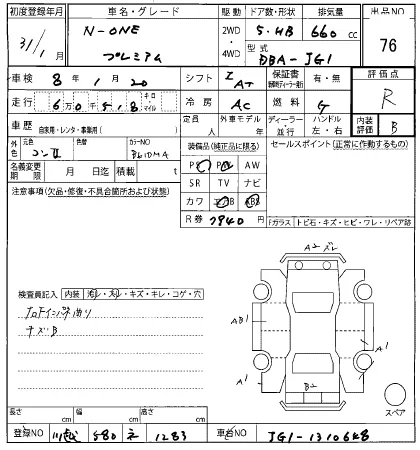 初度登録年月 車名・グレード 駆動 ドア数・形状 排気量 出品NO
31/1月 N-ONE 2WD 5・HB 660cc 76
プレミアム 4WD 型式 DBA-JG1
車検 8年1月20 シフト IAT 保証書 有・無 評価点
走行 6万0千518 キロ・マイル 冷房 AC 燃料 G R
車歴 自家用・レンタ・事業用( ) 定員 人 外車モデル 年 ディーラー 並行 ハンドル 左・右 内装評価 B
外色 元色 コンⅡ カラーNO 装備品(純正品に限る) セールスポイント(正常に作動するもの)
PS PW AW
名義変更期限 月 日迄 積載 t SR TV ナビ
注意事項(欠品・修復・不具合箇所および状態) カワ エアB ABS
R券 7940円 Fガラス トビ石・キズ・ヒビ・ワレ・リペア跡
A2 ズレ
検査員記入 内装 汚レ・スレ・キズ・キレ・コゲ・穴
キズB
A1
A1
A1
B2
スペア
長さ cm 幅 cm 高さ cm
登録NO 川越 580 え 1283 車台NO JG1-1310648